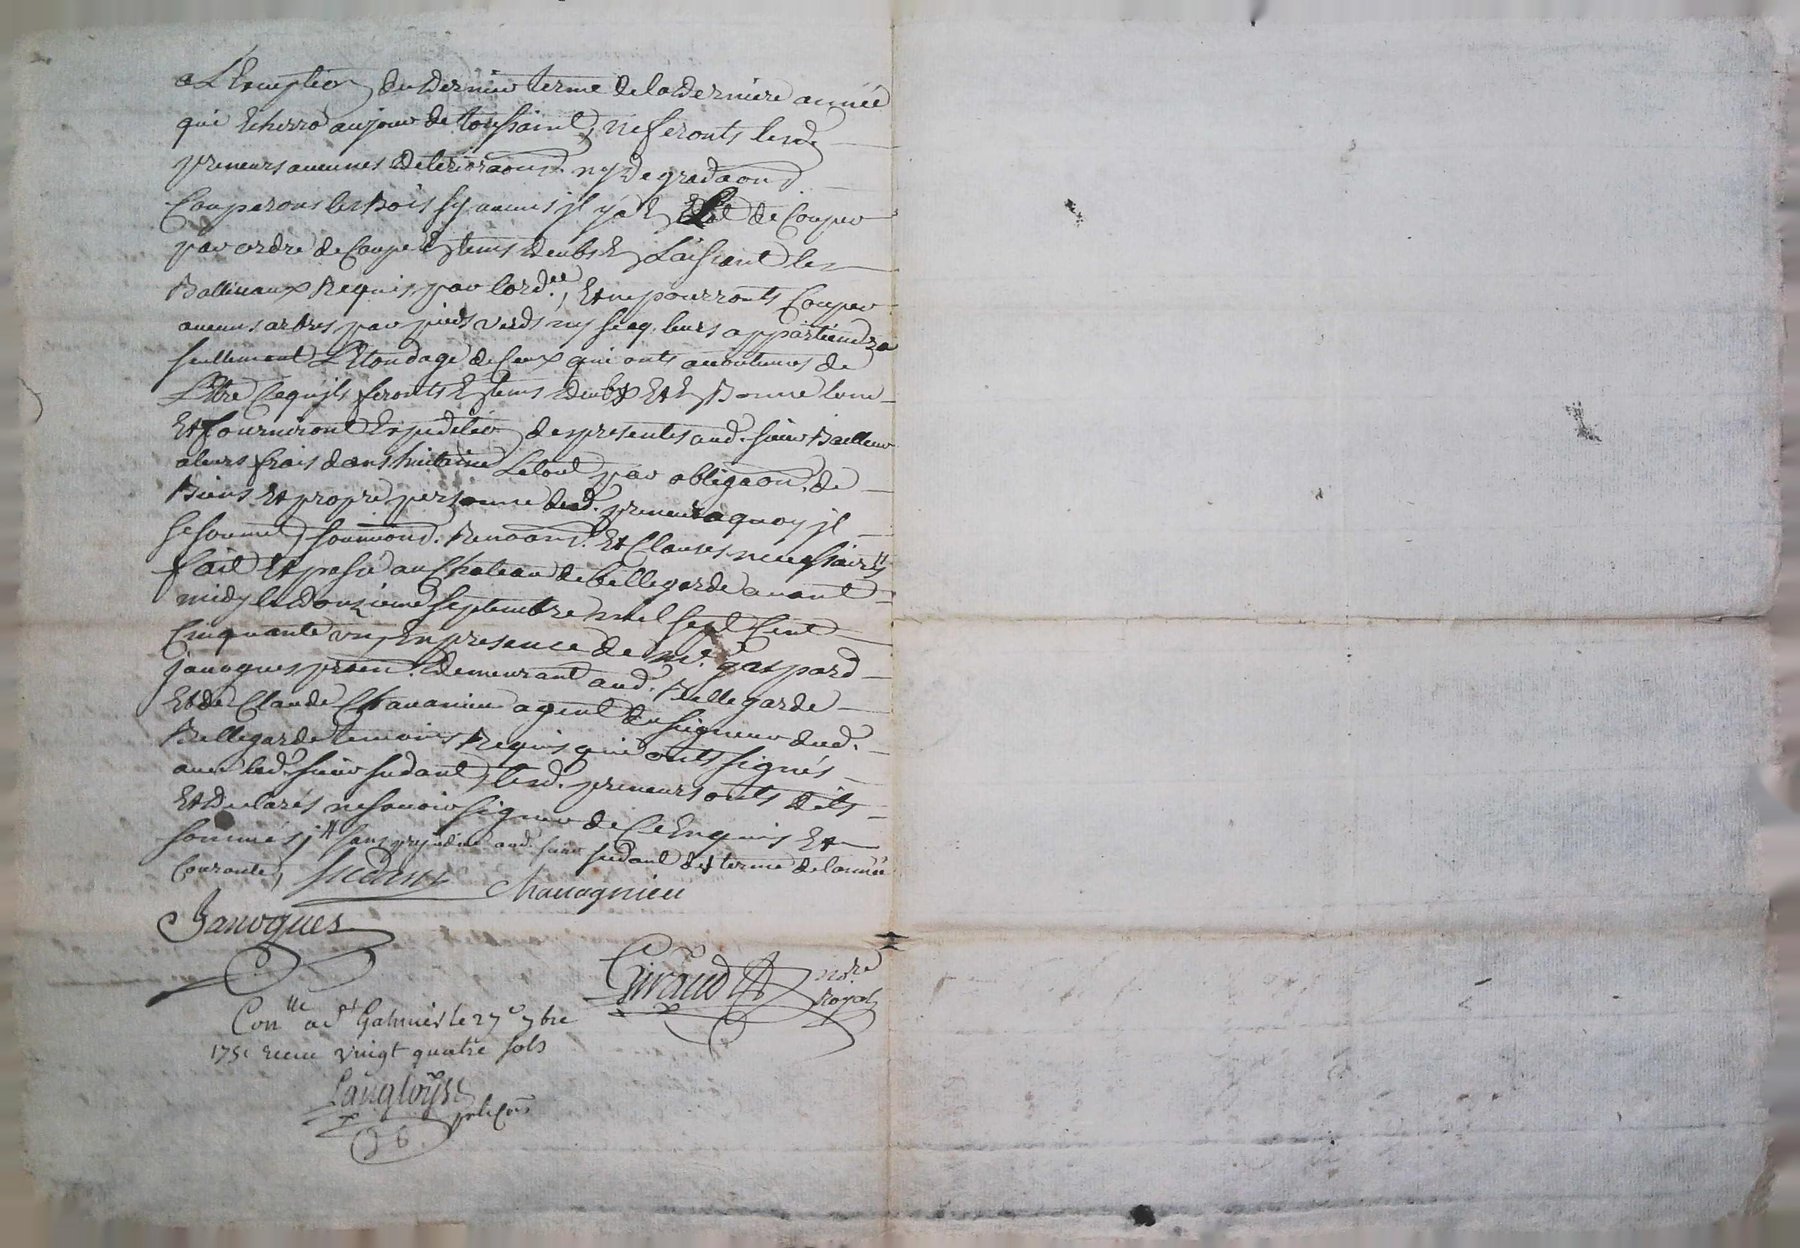 a L'Exception du dernier terme de la derniere année
qui Echerra au jour de toussaint, ne feronts lesd
preneurs aucunes deterioraons. ny degradaons
Couperons les Bois sy aucuns jl y a En Etat de Couper
par ordre de Coupe En tems deubs En Laissant les
Balliveaux Requis par lord.ce, Et ne pourronts Couper
aucuns arbres par pieds verds ny secq. leurs appartiendra
seullement L'Etondage de Ceux qui onts accoutumés de
L'Etre Ce qu'jls feronts En tems deubs Et En Bonne lune
Et fourniront Expedition des presentes aud. sieur Bailleur
a leurs frais dans huitaine Le tout par obligaon. de
Biens Et propre personne desd. preneurs a quoy jl
se soumet soumions. Renoaons. Et Clauses necessaires
fait Et passé au Chateau de bellegarde avant
midy le douzieme septembre mil sept Cent
Cinquante un, En presence de Me. gaspard
janoques praen. demeurant aud. Bellegarde
Et de Claude Chavanieu agent du seigneur dud.
Bellegarde temoins Requis qui onts signés
avec led. sieur sudant, lesd. preneurs onts dits
Et declarés ne scavoir signer de Ce Enquis Et
sommés; sans prejudice aud. sieur sudant des terme de l'année
Courante,
Sudant Chavagnieu
Janoques
Giraud nore royal
Conlle a St Galmier le 27e 7bre
1751 receu vingt quatre sols
Langloys